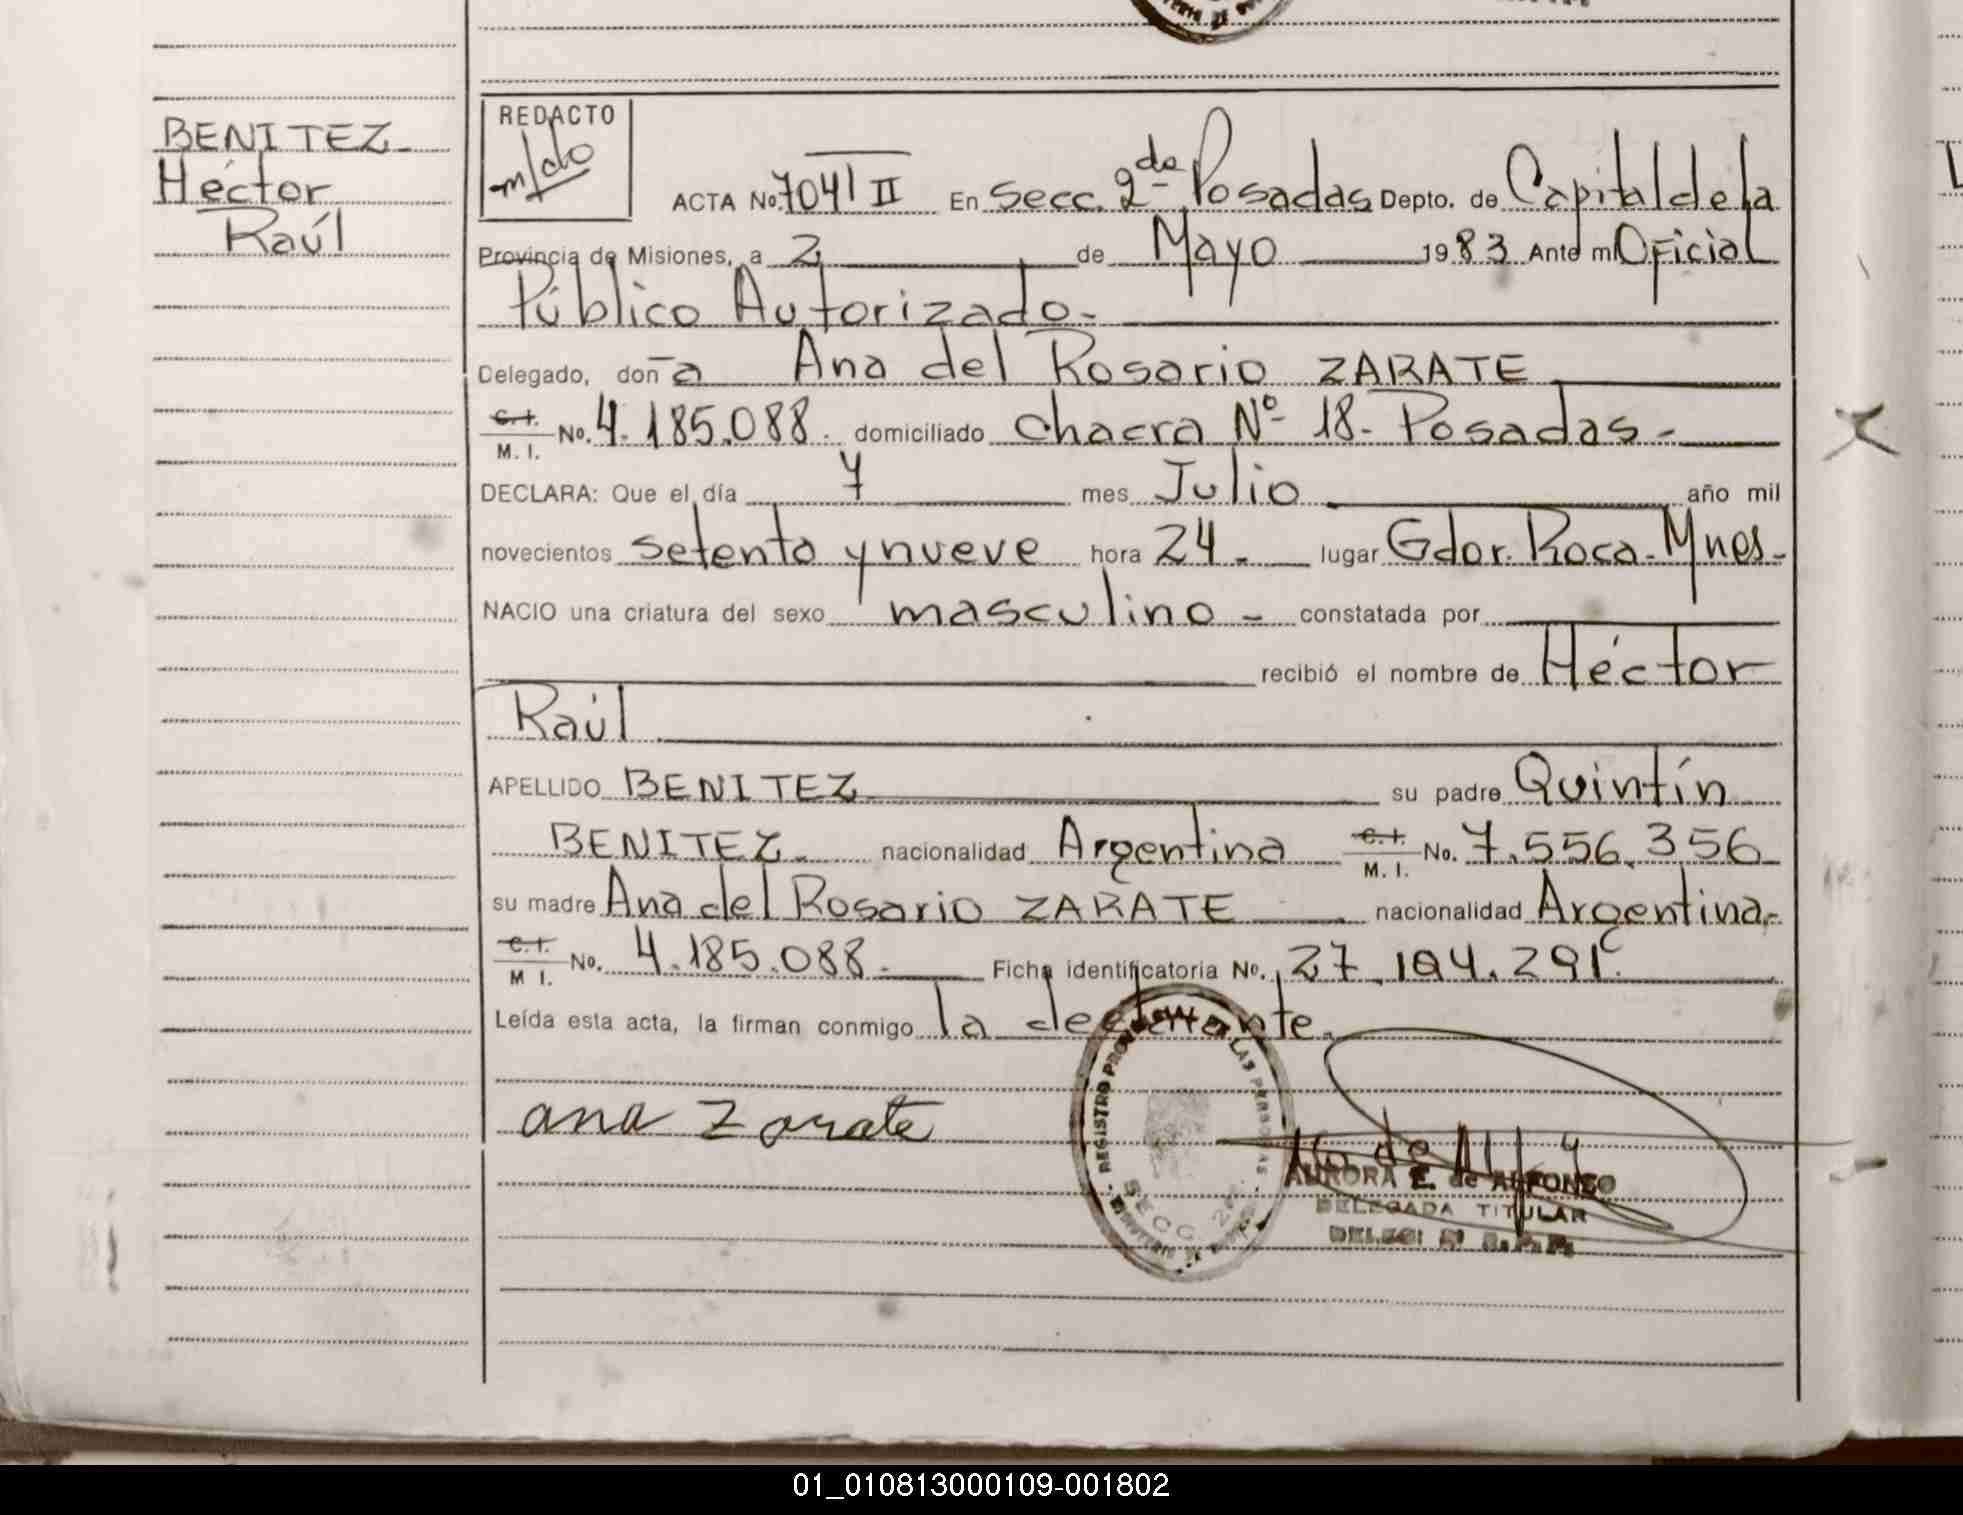 BENITEZ-
Héctor
Raúl
REDACTO
ACTA No. 7041 II En Secc. 2da Posadas Depto. de Capital de la
Provincia de Misiones, a 2 de Mayo 1983 Ante mi Oficial
Público Autorizado-
Delegado, doña Ana del Rosario ZARATE
C.I.
M. I. No. 4.185.088. domiciliado Chacra Nº 18- Posadas-
DECLARA: Que el día 7 mes Julio año mil
novecientos setenta y nueve hora 24- lugar Gdor. Roca-Mnes-
NACIO una criatura del sexo masculino- constatada por
recibió el nombre de Héctor
Raúl
APELLIDO BENITEZ su padre Quintín
BENITEZ- nacionalidad Argentina C.I.
M. I. No. 7.556.356
su madre Ana del Rosario ZARATE nacionalidad Argentina-
C.I.
M I. No. 4.185.088- Ficha identificatoria No. 27.194.291
Leída esta acta, la firman conmigo la declarante.
ana Zarate
REGISTRO PROVINCIAL DE LAS PERSONAS
SECC 2
AURORA E. de ALFONSO
DELEGADA TITULAR
01_010813000109-001802